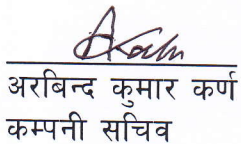 अरबिन्द कुमार कर्ण
कम्पनी सचिव